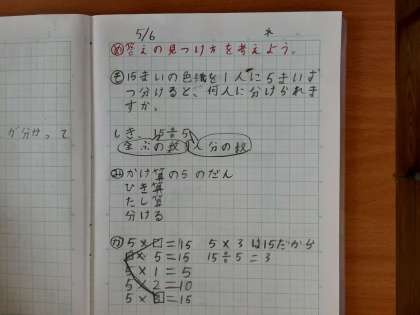 5/6
め 答えの見つけ方を考えよう。
も 15まいの色紙を1人に5まいず
つ分けると、何人に分けられま
すか。
しき、15÷5
全ぶの数 1人分の数
み かけ算の5のだん
ひき算
たし算
分ける
が分かって
カ 5×□=15 5×3は15だから
5×5=15 15÷5=3
5×1=5
5×2=10
5×3=15